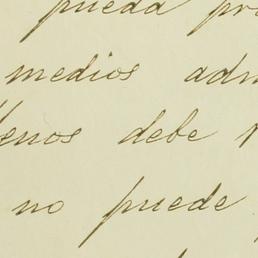 pueda pr
medios adm
enos debe
no puede